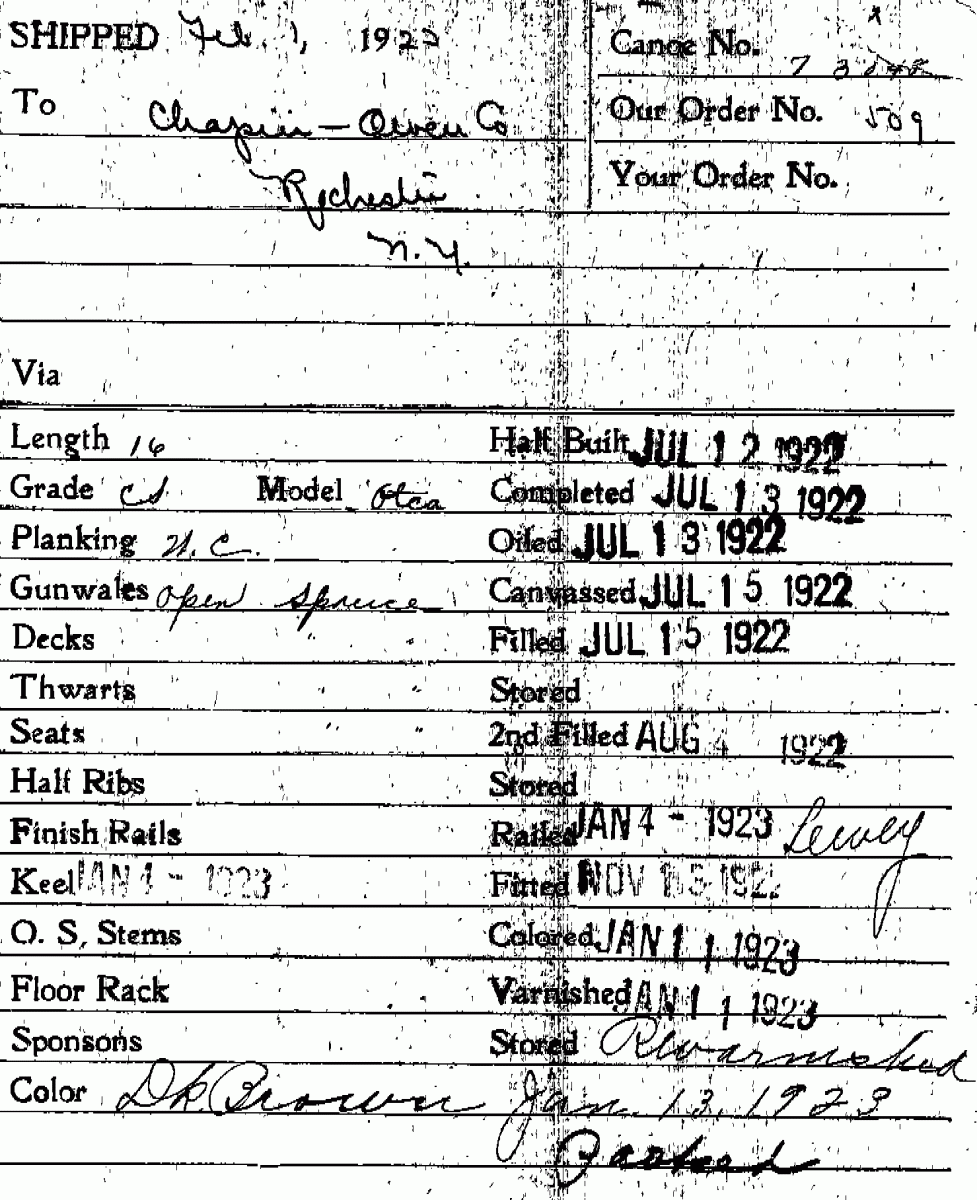 SHIPPED Feb. 1, 1923
Canoe No.
To Chapin-Owen Co
Our Order No. 509
Rochester
Your Order No.
N.Y.
Via
Length 16 Half Built JUL 12 1922
Grade CS Model Otca Completed JUL 13 1922
Planking W.C. Oiled JUL 13 1922
Gunwales open spruce Canvassed JUL 15 1922
Decks " " Filled JUL 15 1922
Thwarts " " Stored
Seats " " 2nd Filled AUG 4 1922
Half Ribs Stored
Finish Rails Railed JAN 4 - 1923
Keel JAN 4 - 1923 Fitted NOV 15 1922
O. S. Stems Colored JAN 11 1923
Floor Rack Varnished JAN 11 1923
Sponsons Stored Revarnished
Color Dk Brown Jan. 13, 1923